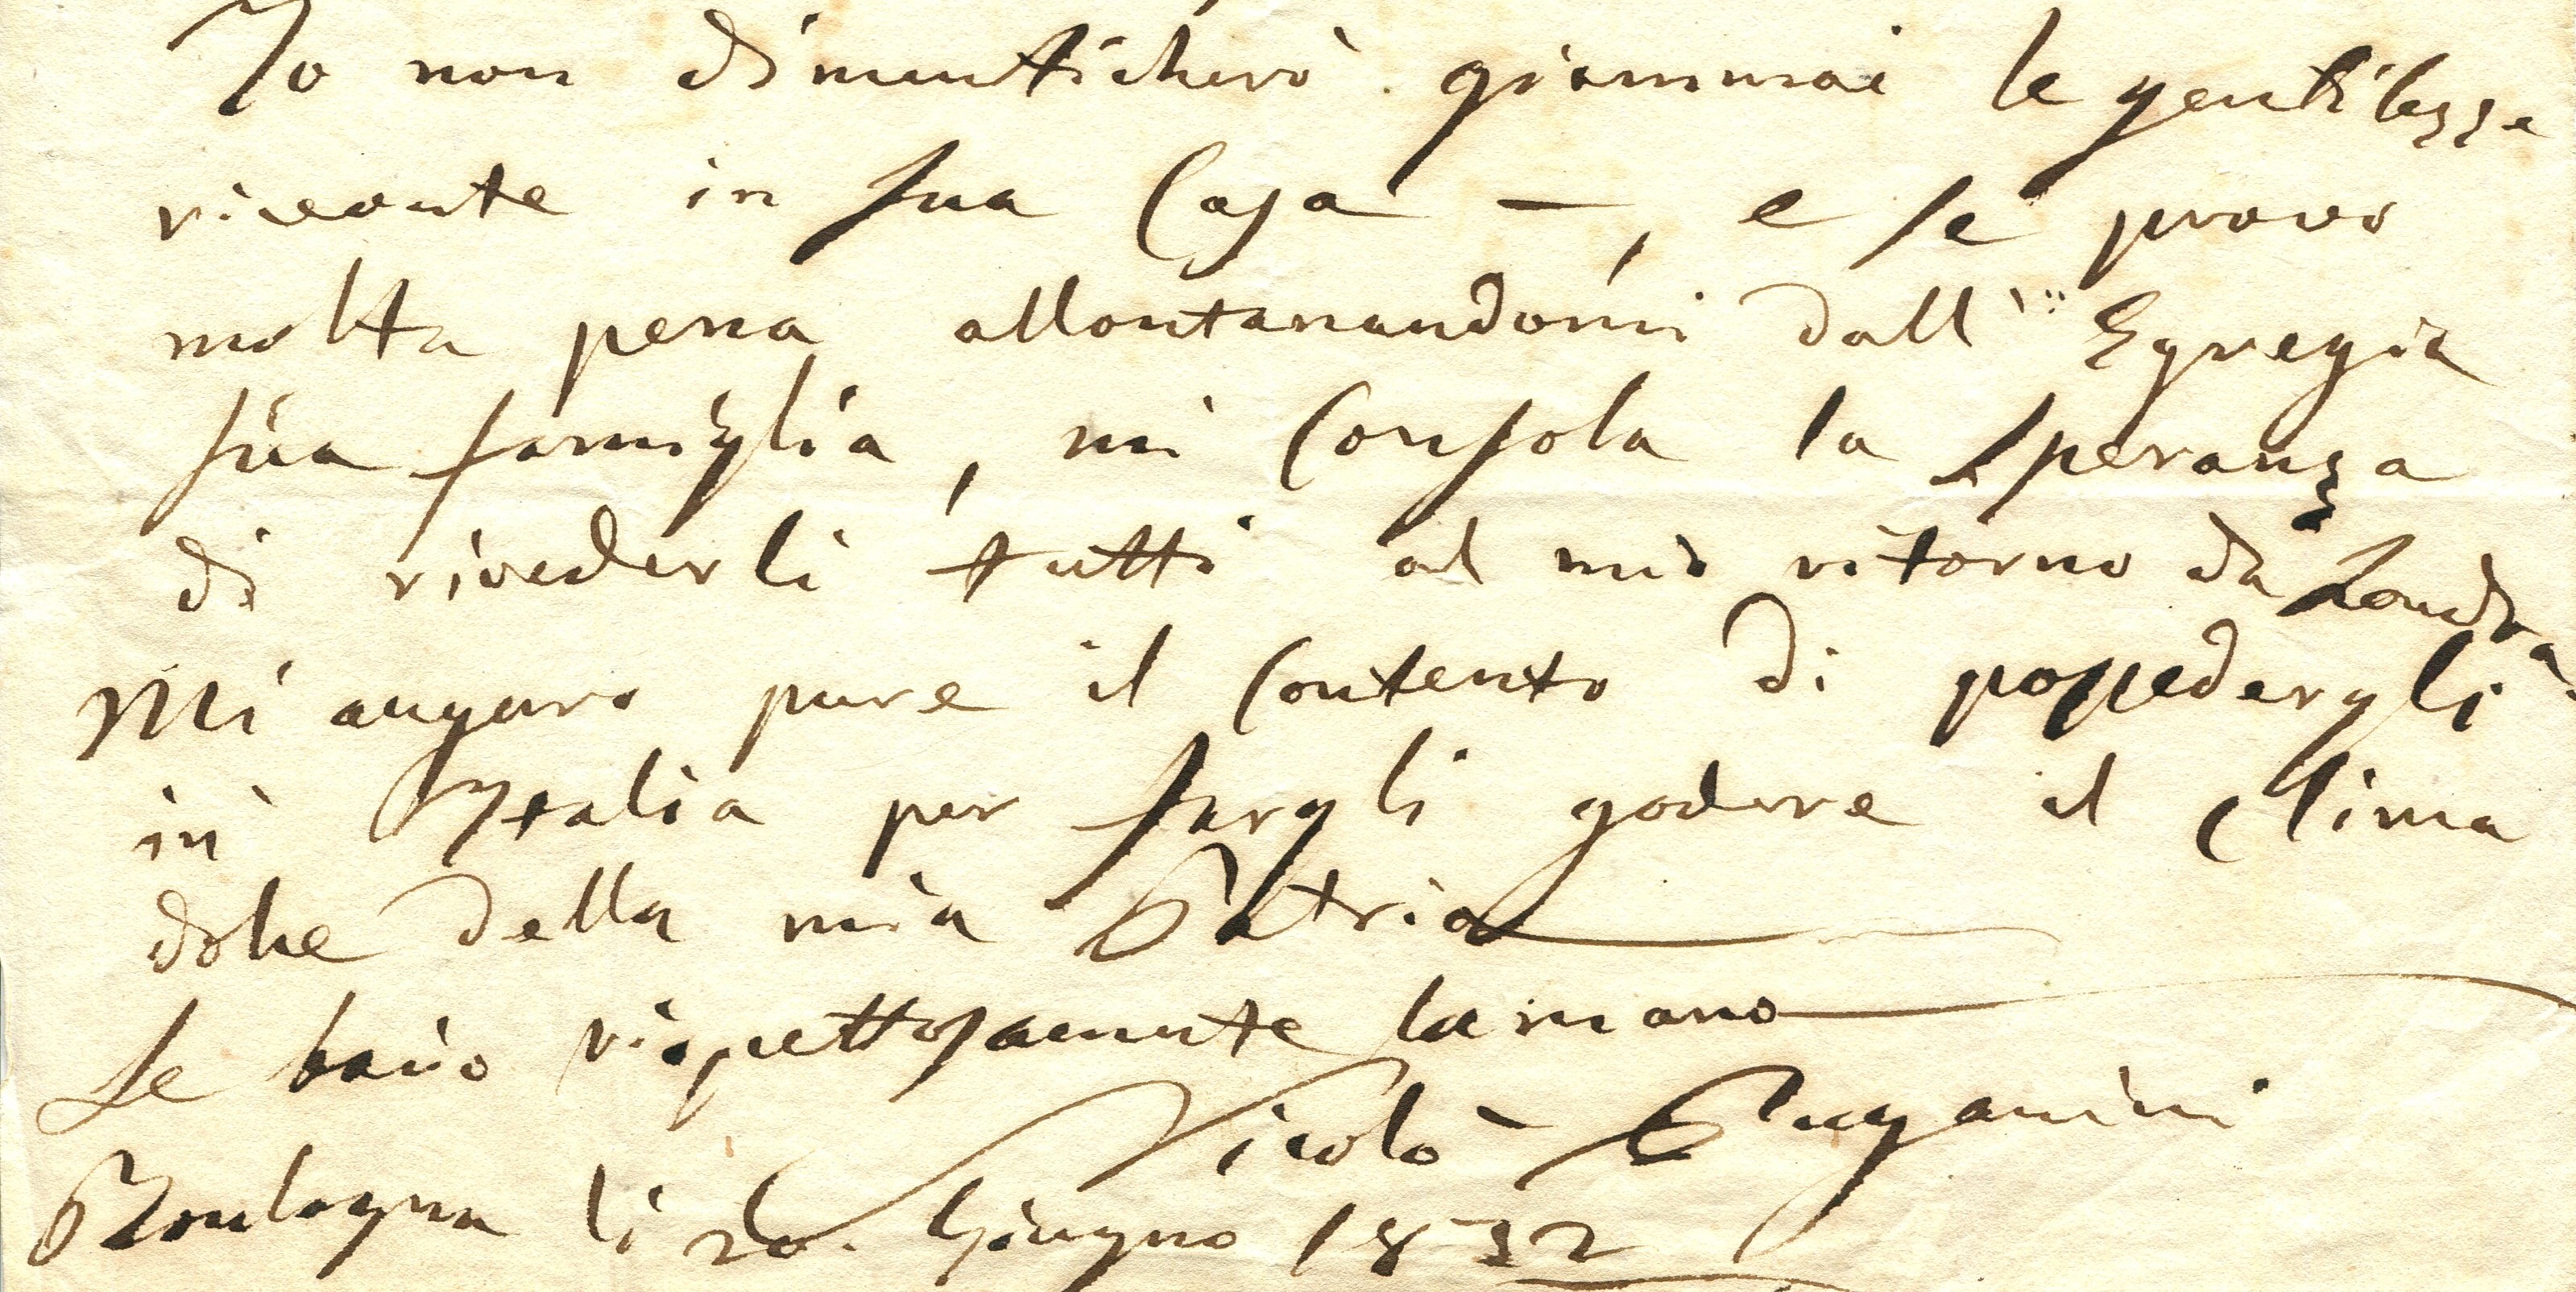 Io non dimenticherò giammai le gentilezze
ricevute in sua Casa —, e se provo
molta pena allontanandomi dall' Egregia
sua famiglia, mi Consola la Speranza
di rivederli tutti al mio ritorno da Londra.
Mi auguro pure il Contento di possedergli
in Ytalia per fargli godere il Clima
dolce della mia Patria
Le bacio rispettosamente la mano
Nicolò Paganini
Boulogna li 20. Giugno 1832